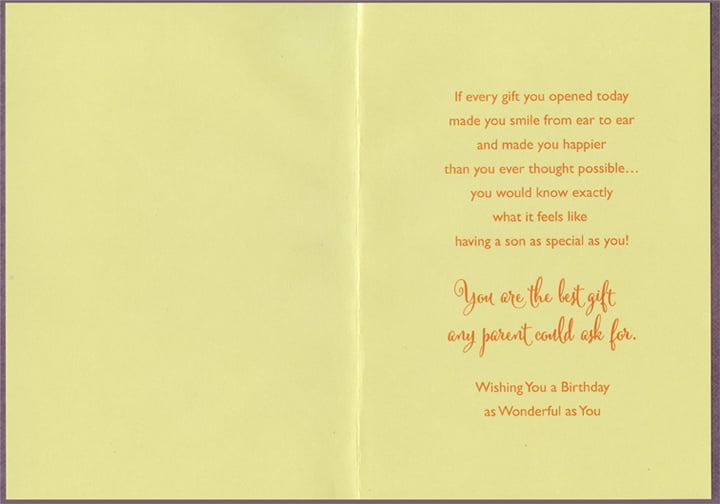 If every gift you opened today
made you smile from ear to ear
and made you happier
than you ever thought possible...
you would know exactly
what it feels like
having a son as special as you!
You are the best gift
any parent could ask for.
Wishing You a Birthday
as Wonderful as You